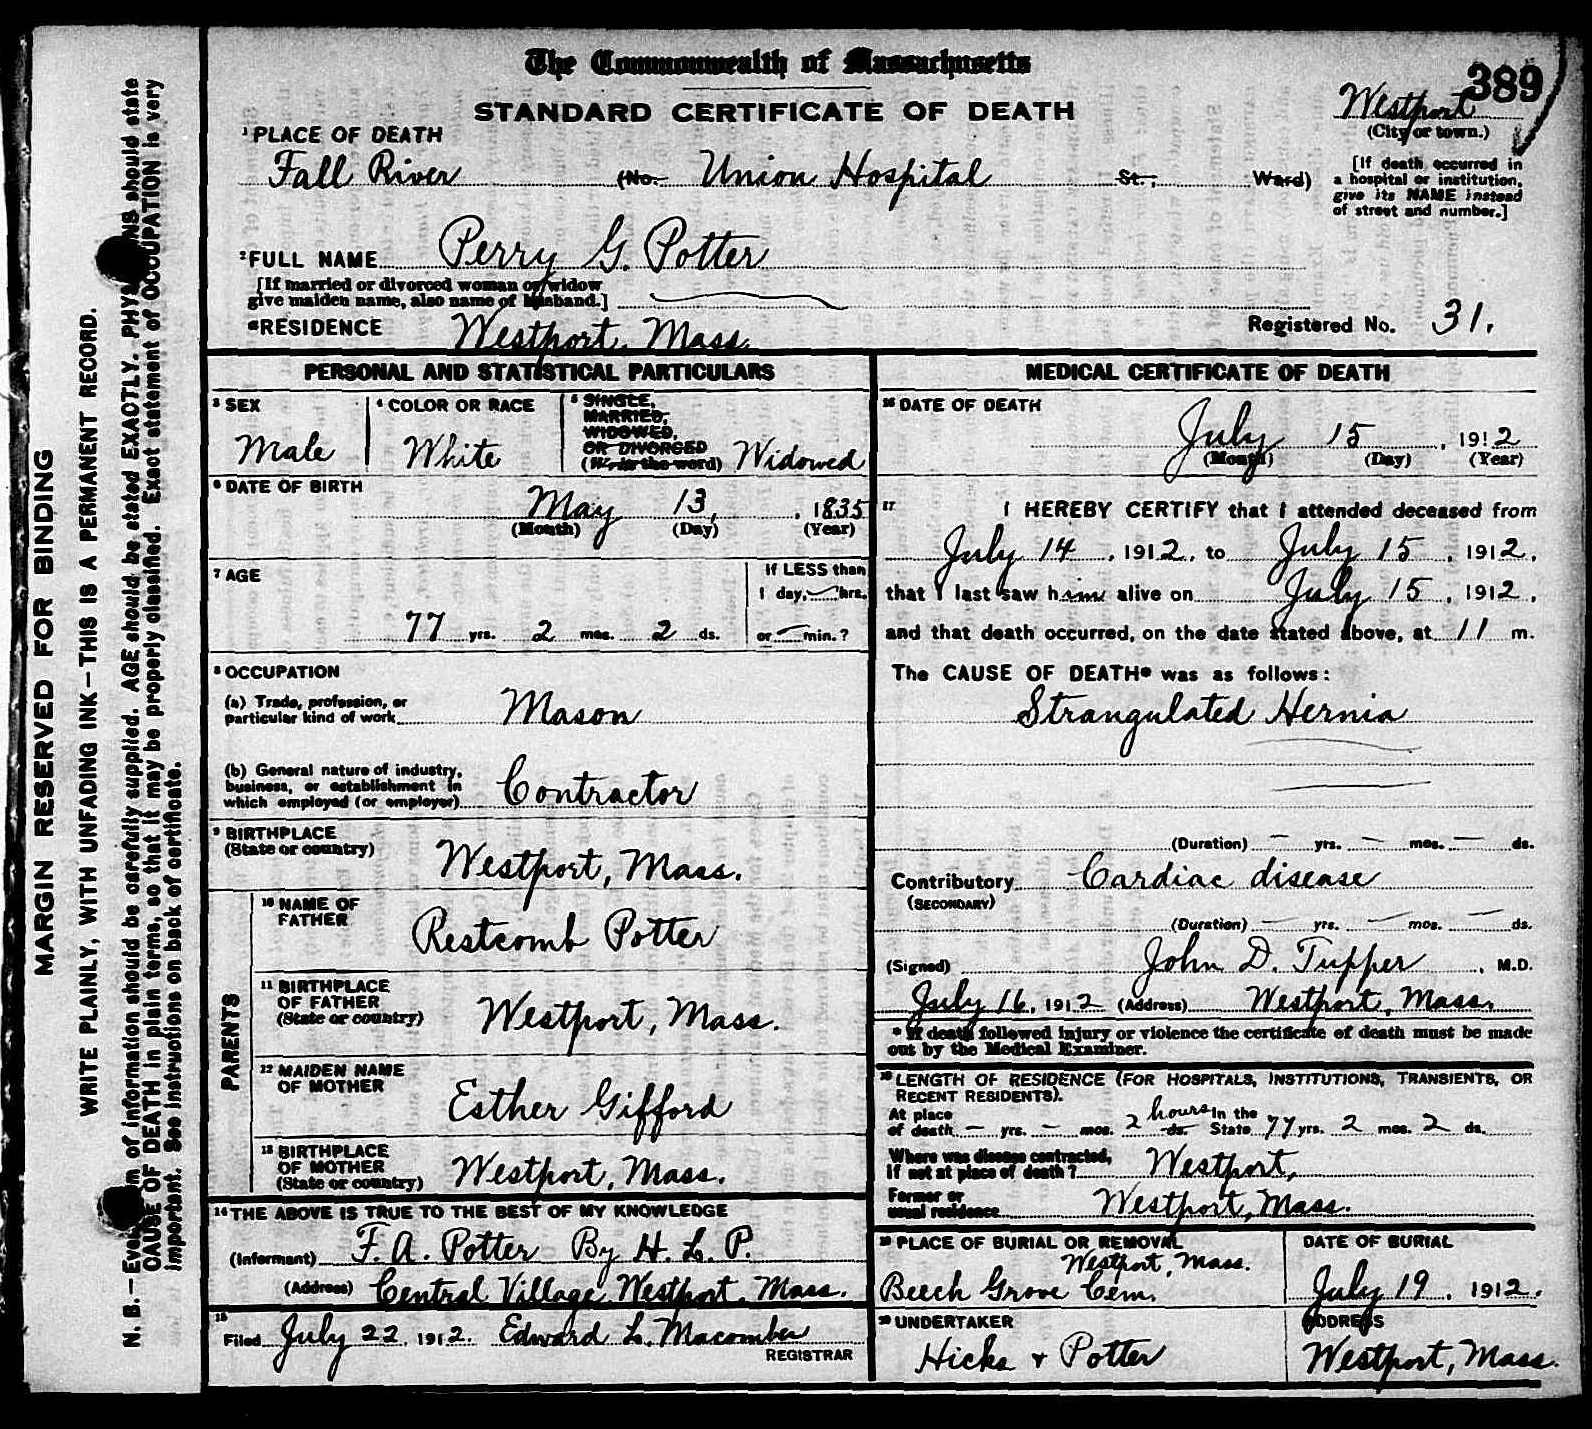 The Commonwealth of Massachusetts
389
STANDARD CERTIFICATE OF DEATH
Westport
(City or town.)
1 PLACE OF DEATH
Fall River (No. Union Hospital St., Ward)
[If death occurred in
a hospital or institution,
give its NAME instead
of street and number.]
2 FULL NAME Perry G. Potter
[If married or divorced woman or widow
give maiden name, also name of husband.]
RESIDENCE Westport, Mass.
Registered No. 31.
PERSONAL AND STATISTICAL PARTICULARS
3 SEX
Male
4 COLOR OR RACE
White
5 SINGLE,
MARRIED,
WIDOWED,
OR DIVORCED
(Write the word) Widowed
6 DATE OF BIRTH
May 13, , 1835
(Month) (Day) (Year)
7 AGE
77 yrs. 2 mos. 2 ds.
If LESS than
1 day, hrs.
or min.?
8 OCCUPATION
(a) Trade, profession, or
particular kind of work Mason
(b) General nature of industry,
business, or establishment in
which employed (or employer) Contractor
9 BIRTHPLACE
(State or country)
Westport, Mass.
PARENTS
10 NAME OF
FATHER
Restcomb Potter
11 BIRTHPLACE
OF FATHER
(State or country) Westport, Mass.
12 MAIDEN NAME
OF MOTHER
Esther Gifford
13 BIRTHPLACE
OF MOTHER
(State or country) Westport, Mass.
14 THE ABOVE IS TRUE TO THE BEST OF MY KNOWLEDGE
(Informant) F. A. Potter By H. L. P.
(Address) Central Village, Westport, Mass.
15
Filed July 22, 1912. Edward L. Macomber
REGISTRAR
MEDICAL CERTIFICATE OF DEATH
16 DATE OF DEATH
July 15 , 1912
(Month) (Day) (Year)
17 I HEREBY CERTIFY that I attended deceased from
July 14 , 1912, to July 15 , 1912,
that I last saw him alive on July 15 , 1912,
and that death occurred, on the date stated above, at 11 m.
The CAUSE OF DEATH* was as follows:
Strangulated Hernia
(Duration) yrs. mos. ds.
Contributory Cardiac disease
(SECONDARY)
(Duration) yrs. mos. ds.
(Signed) John D. Tupper , M.D.
July 16, 1912 (Address) Westport, Mass.
* If death followed injury or violence the certificate of death must be made
out by the Medical Examiner.
18 LENGTH OF RESIDENCE (FOR HOSPITALS, INSTITUTIONS, TRANSIENTS, OR
RECENT RESIDENTS).
At place
of death yrs. mos. 2 hours ds. In the State 77 yrs. 2 mos. 2 ds.
Where was disease contracted,
if not at place of death? Westport,
Former or
usual residence Westport, Mass.
19 PLACE OF BURIAL OR REMOVAL
Westport, Mass.
Beech Grove Cem.
DATE OF BURIAL
July 19 , 1912.
20 UNDERTAKER
Hicks & Potter
ADDRESS
Westport, Mass.
MARGIN RESERVED FOR BINDING
WRITE PLAINLY, WITH UNFADING INK—THIS IS A PERMANENT RECORD.
N. B.—Every item of information should be carefully supplied. AGE should be stated EXACTLY. PHYSICIANS should state
CAUSE OF DEATH in plain terms, so that it may be properly classified. Exact statement of OCCUPATION is very
important. See instructions on back of certificate.